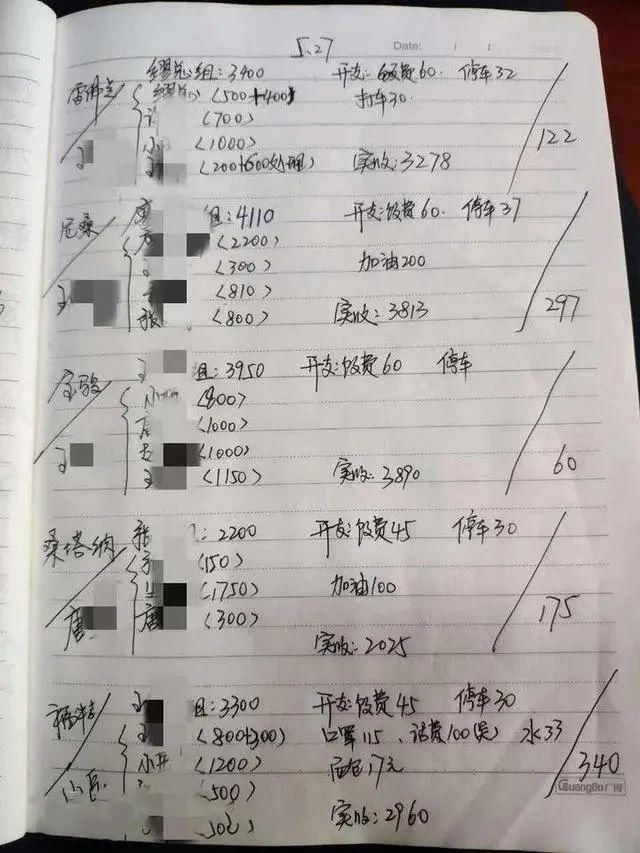 5.27 Date: / /
雷佛兰 组:3400 开支:饭费60 停车32
(500+400) 打车30
(700)
小 (1000) 122
王 (200+600处理) 实收:3278
尼桑 唐 组:4110 开支:饭费60 停车37
(2200)
(300) 加油200
(810)
王 张 (800) 实收:3813 297
宝骏 王 组:3950 开支:饭费60 停车
小 (800)
(1000)
王 (1000)
王 (1150) 实收:3890 60
桑塔纳 张 :2200 开支:饭费45 停车30
(150)
(1750) 加油100
唐 唐 (300) 175
实收:2025
王 组:3300 开支:饭费45 停车30
(800+300) 口罩115、话费100(吴) 水33
小 (1200) 17元 340
(500) GuangBo广博
实收:2960